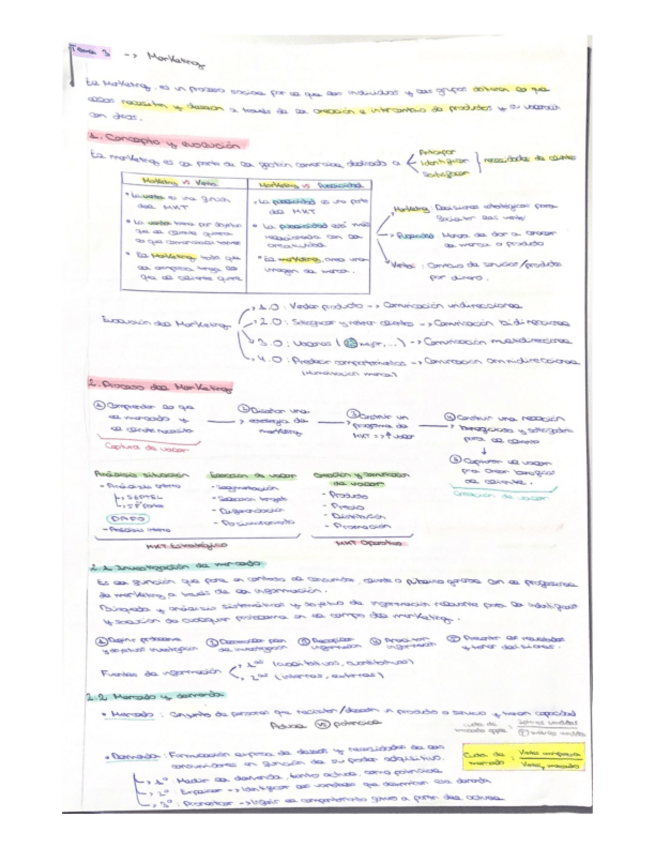 Tema 3 -> Marketing
El Marketing, es un proceso social por el que los individuos y los grupos obtienen lo que
ellos necesitan y desean a través de la creación e intercambio de productos y su valoración
con otros.
1. Concepto y evolución
El marketing es la parte de la gestión comercial dedicada a
Anticipar
Identificar
Satisfacer
necesidades de clientes
Marketing vs Venta
Marketing vs Publicidad
• La venta es una función
del MKT
• La publicidad es una parte
del MKT
• La venta tiene por objetivo
que el cliente quiera
lo que
• La publicidad está más
relacionada con la
creatividad
• El Marketing hace que
la empresa tenga lo
que el cliente quiere
• El marketing, crea una
imagen de marca.
Marketing: Decisiones estratégicas para
las ventas
Publicidad: Manera de dar a conocer
la marca o producto
Ventas: Cambio de servicios/productos
por dinero.
Evolución del Marketing
1.0: Vender producto -> Comunicación unidireccional
2.0: Satisfacer y retener clientes -> Comunicación bidireccional
3.0: Valores -> Comunicación multidireccional
4.0: Predecir comportamientos -> Comunicación omnidireccional
2. Proceso del Marketing
① Comprender lo que
el mercado y
el cliente necesita
② Diseñar una
estrategia de
marketing
③ Construir un
programa de
MKT ↑ valor
④ Construir una relación
para el cliente
⑤ Capturar el valor
para crear beneficios
del cliente.
Captura de valor
Creación de valor
Análisis situación
- Análisis externo
DAFO
- Análisis interno
Elección de valor
- Segmentación
- Selección target
- Diferenciación
- Posicionamiento
Creación y comunicación
de valor
- Producto
- Precio
- Distribución
- Promoción
MKT Estratégico
MKT Operativo
2.1 Investigación de mercado
Es la función que pone en contacto al consumidor, cliente o público general con el profesional
de marketing a través de la información.
Búsqueda y análisis sistemático y objetivo de información relevante para la identificación
y solución de cualquier problema en el campo del marketing.
① Definir problema
y objetivos investigación
② Desarrollar plan
de investigación
③ Recopilar
información
④ Analizar
información
⑤ Presentar los resultados
y tomar decisiones.
Fuentes de información
1ª (cualitativas, cuantitativas)
2ª (internas, externas)
2.2 Mercado y demanda
• Mercado: Conjunto de personas que necesitan/desean un producto o servicio y tienen capacidad
Actual vs potencial
• Demanda: Formulación expresa de deseos y necesidades de los
consumidores en función de su poder adquisitivo.
Cuota de mercado = Ventas empresa / Ventas mercado
1º Medir la demanda, tanto actual, como potencial
2º Explicar -> Identificar las variables que determinan esa demanda
3º Pronosticar -> el comportamiento futuro a partir del actual